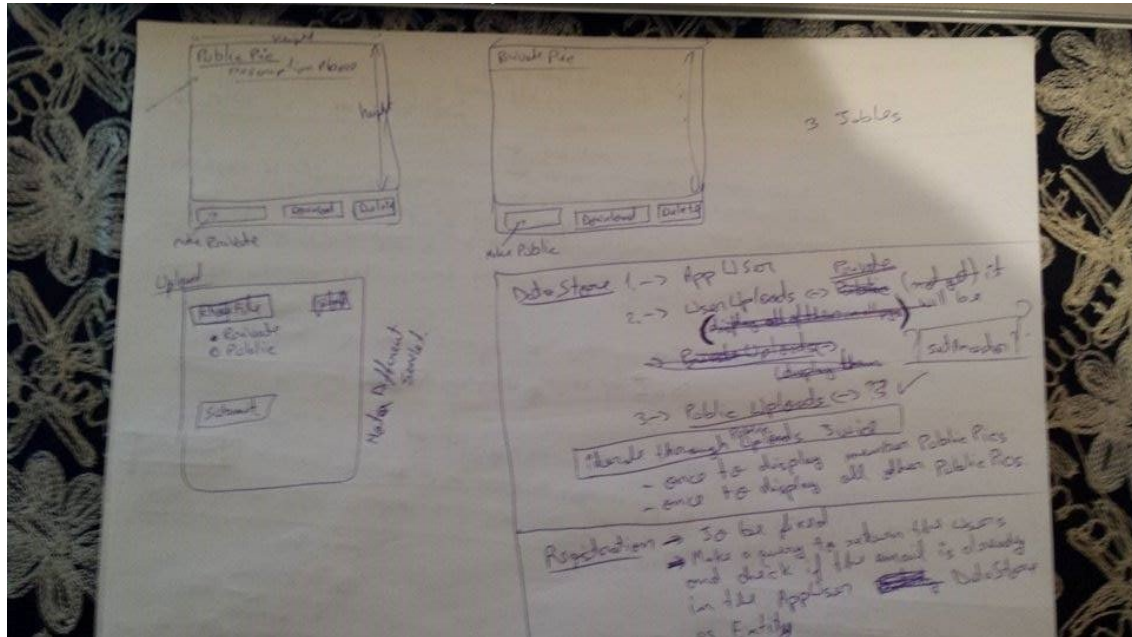 height
Public Pic
height
Download Delete
make Private
Private Pic
Download Delete
make Public
3 Tables
Upload
Private
Public
Submit
Make Different
Servlet
DataStore 1. -> App User
2. -> UserUploads <-> Private
will be
3 -> Public Uploads <->
iterate through Public Uploads twice
- once to display member Public Pics
- once to display all other Public Pics
Registration -> To be fixed
-> Make a query to return the users
and check if the email is already
in the AppUser DataStore
as Entity